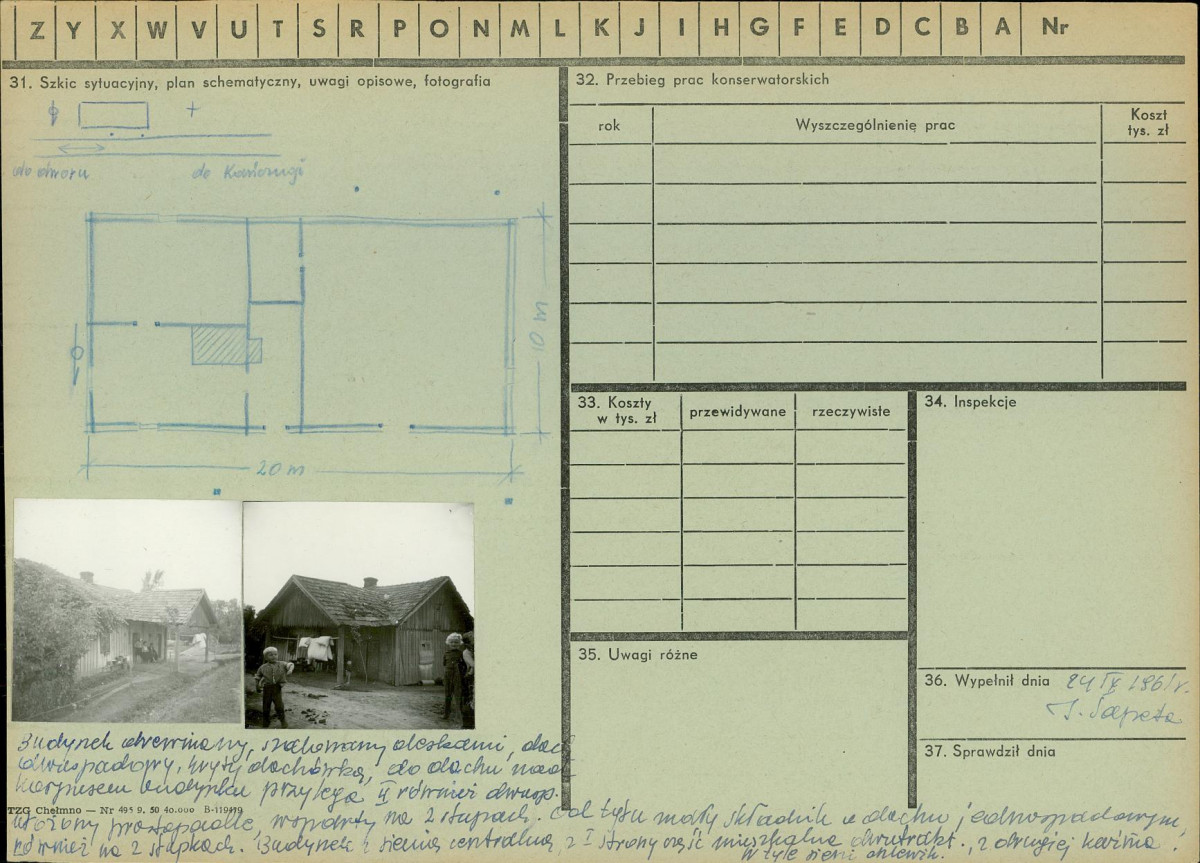 Z Y X W V U T S R P O N M L K J I H G F E D C B A Nr
31. Szkic sytuacyjny, plan schematyczny, uwagi opisowe, fotografia
do dworu do Kańczugi
10 m
20 m
Budynek drewniany, szalowany deskami, dach
dwuspadowy, kryty dachówką, do dachu nad
korpusem budynku przylega II również dwusp.
TZG Chełmno — Nr 495 9. 50 40.000 B-119419
ułożony prostopadle, wsparty na 2 słupach. Od tyłu mały składzik o dachu jednospadowym,
również na 2 słupkach. Budynek z sienią centralną, z I strony część mieszkalna dwutrakt., z drugiej karczma.
W tyle sieni chlewik.
32. Przebieg prac konserwatorskich
rok Wyszczególnienię prac Koszt
tys. zł
33. Koszty
w tys. zł przewidywane rzeczywiste
34. Inspekcje
35. Uwagi różne
36. Wypełnił dnia 24 IX 1961 r.
37. Sprawdził dnia